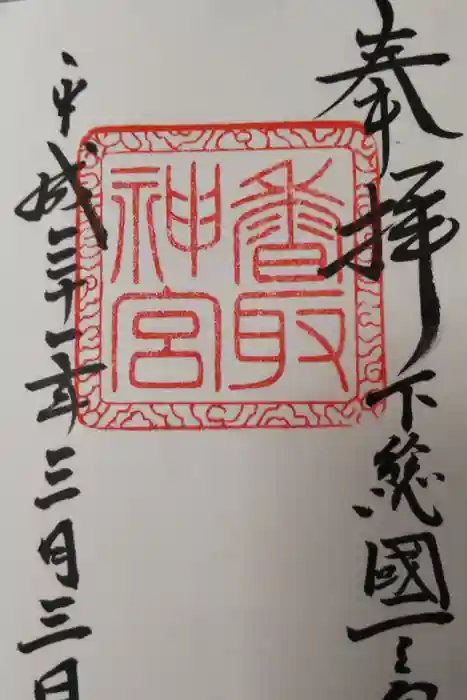 奉拝
下総國一之
香取
神宮
平成三十一年三月三日